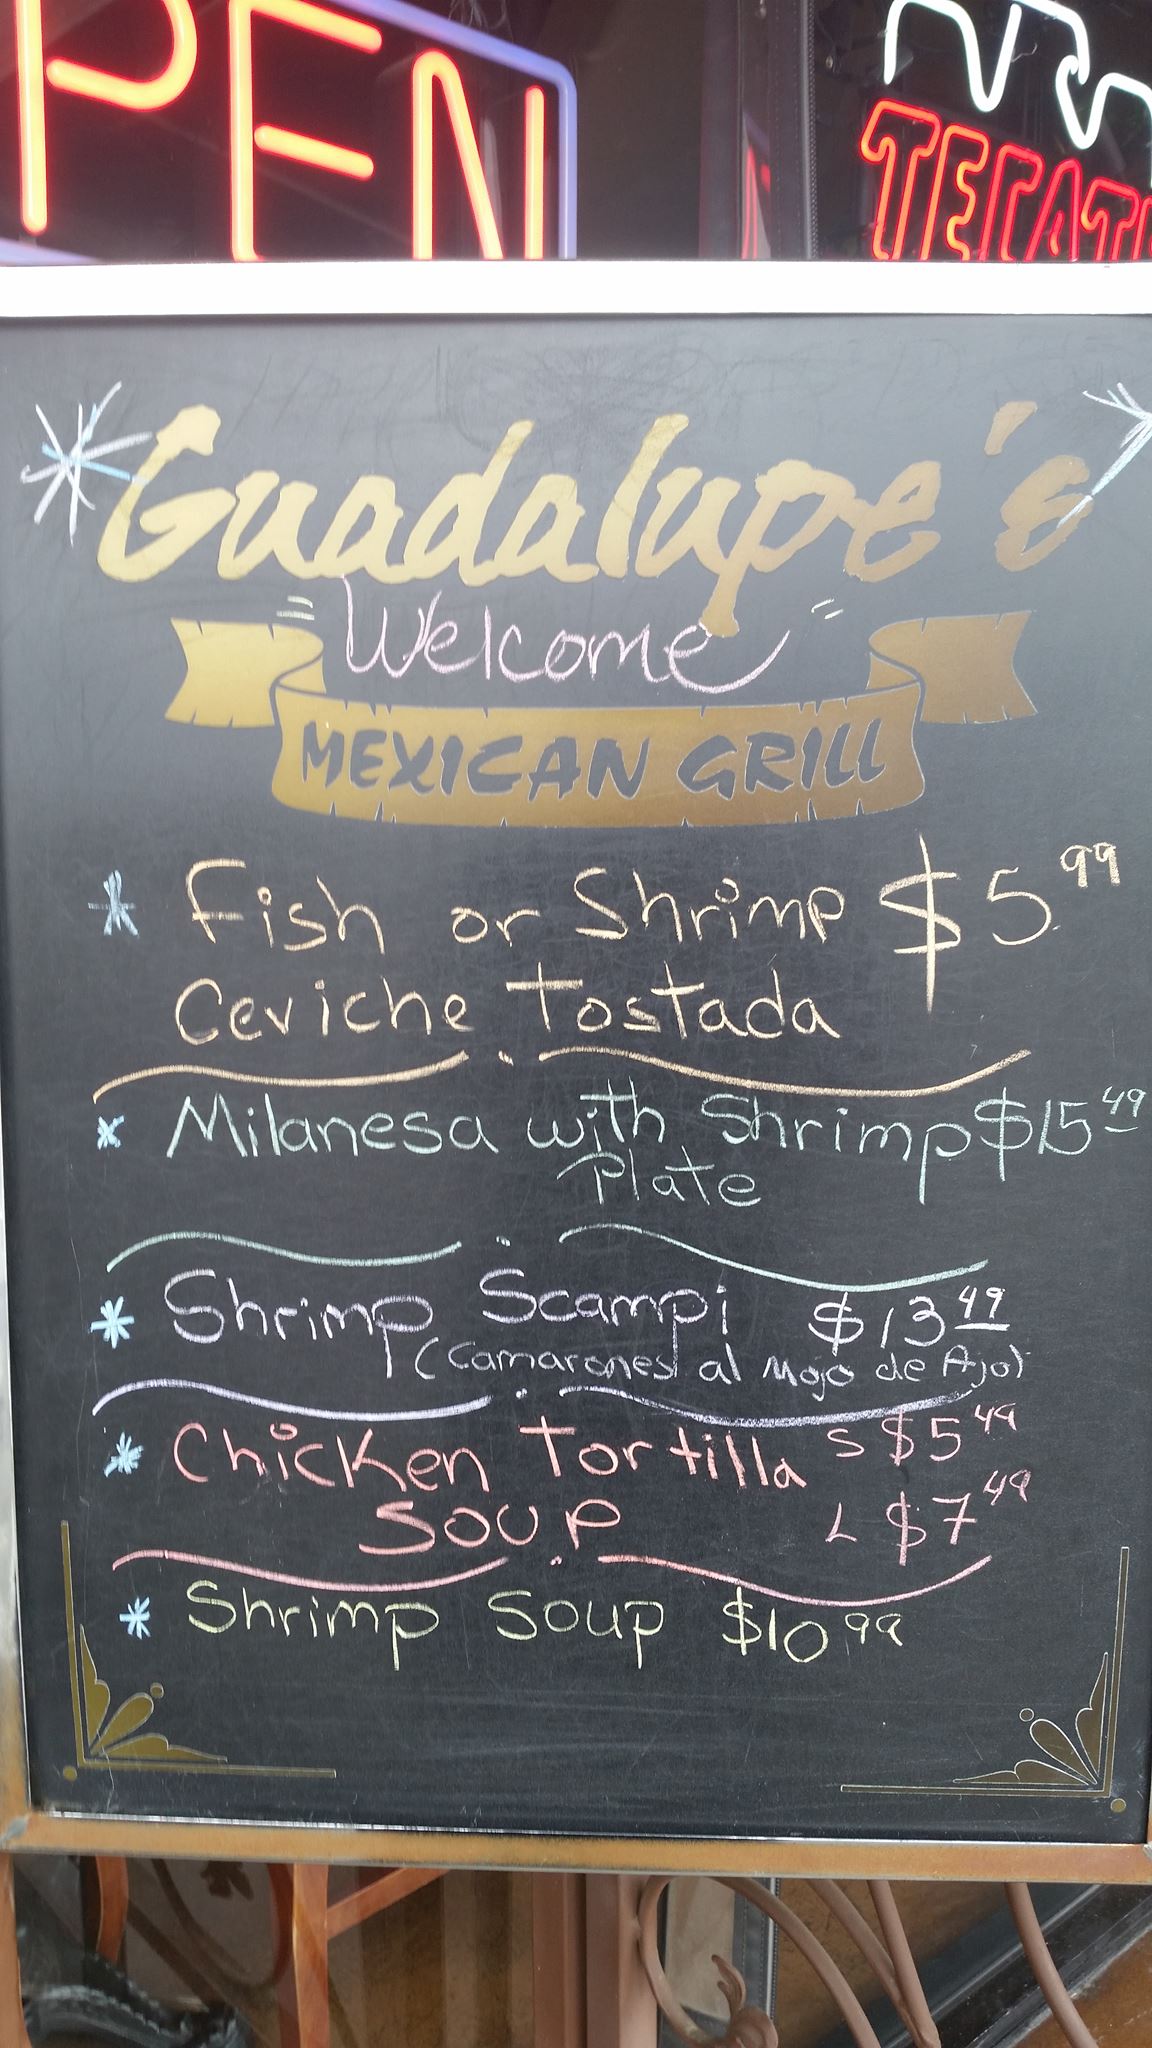 PEN
TECAT
Guadalupe's
Welcome
MEXICAN GRILL
* Fish or Shrimp $5.99
Ceviche Tostada
* Milanesa with Shrimp $15 49
Plate
* Shrimp Scampi $13 49
(Camarones al Mojo de Ajo)
* Chicken Tortilla S $5 49
Soup L $7 49
* Shrimp Soup $10 99